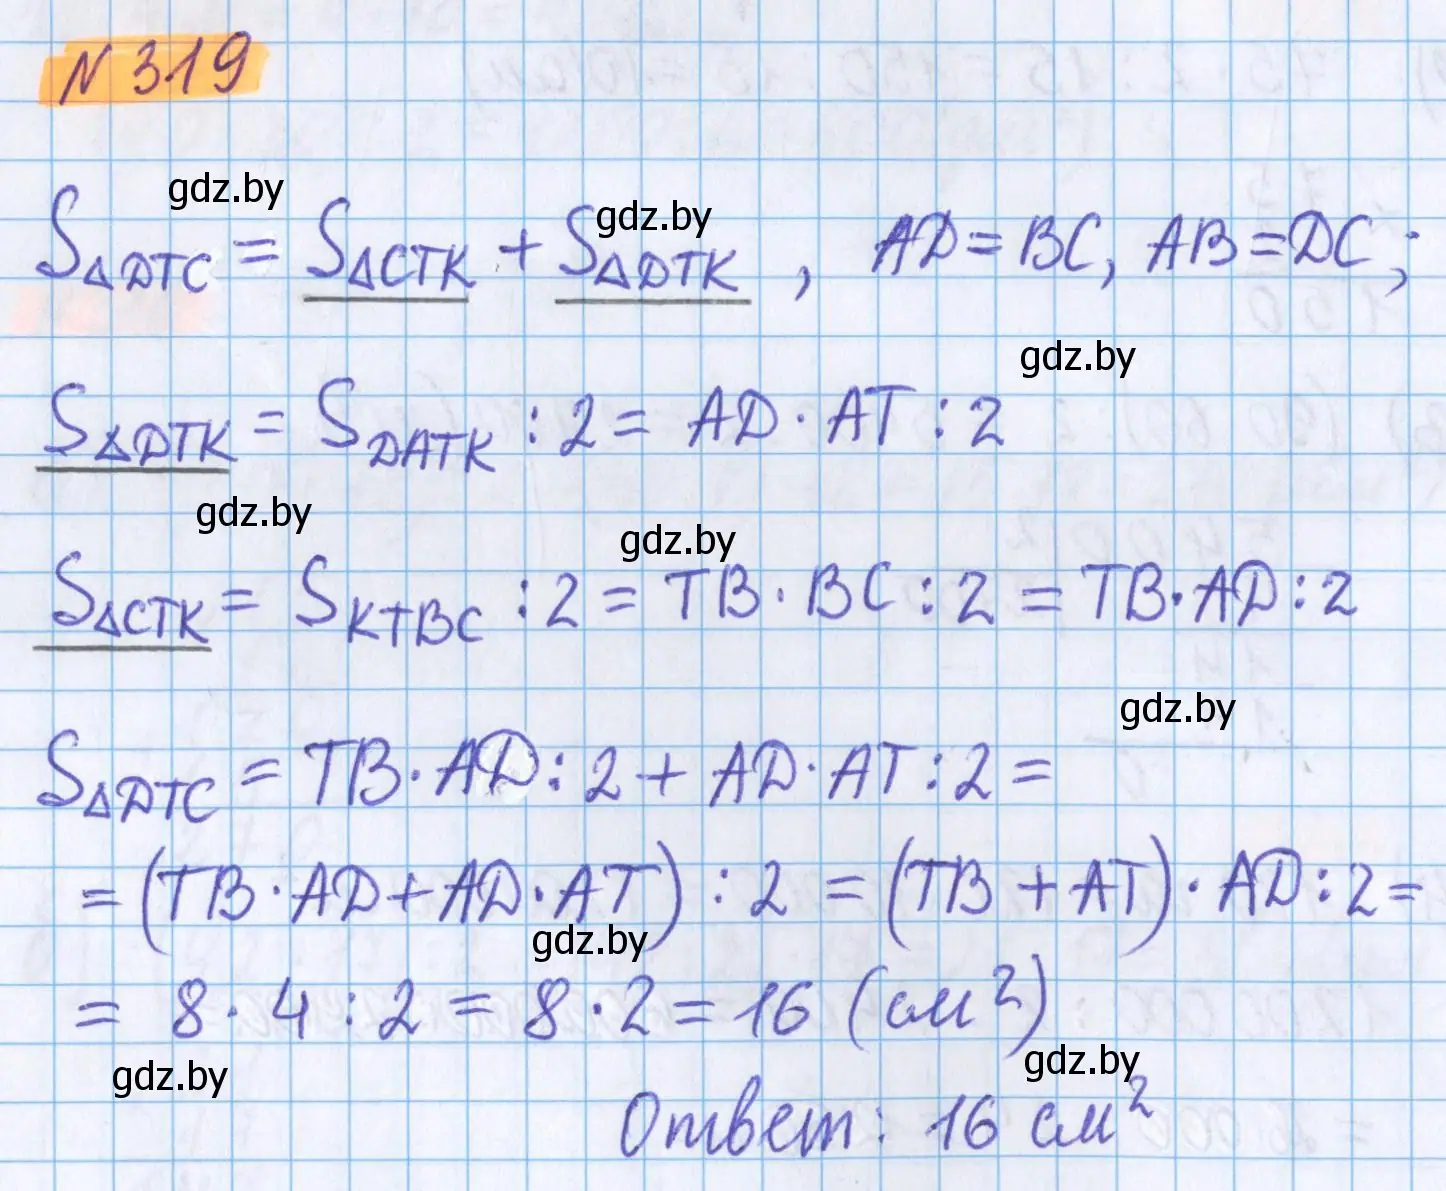 N 319
gdz.by
gdz.by
S△DTC = S△CTK + S△DTK , AD = BC, AB = DC ;
gdz.by
S△DTK = SDATK : 2 = AD · AT : 2
gdz.by
gdz.by
S△CTK = SKTBC : 2 = TB · BC : 2 = TB · AD : 2
gdz.by
S△DTC = TB · AD : 2 + AD · AT : 2 =
= (TB · AD + AD · AT) : 2 = (TB + AT) · AD : 2 =
gdz.by
= 8 · 4 : 2 = 8 · 2 = 16 (см²)
gdz.by
gdz.by
Ответ: 16 см²